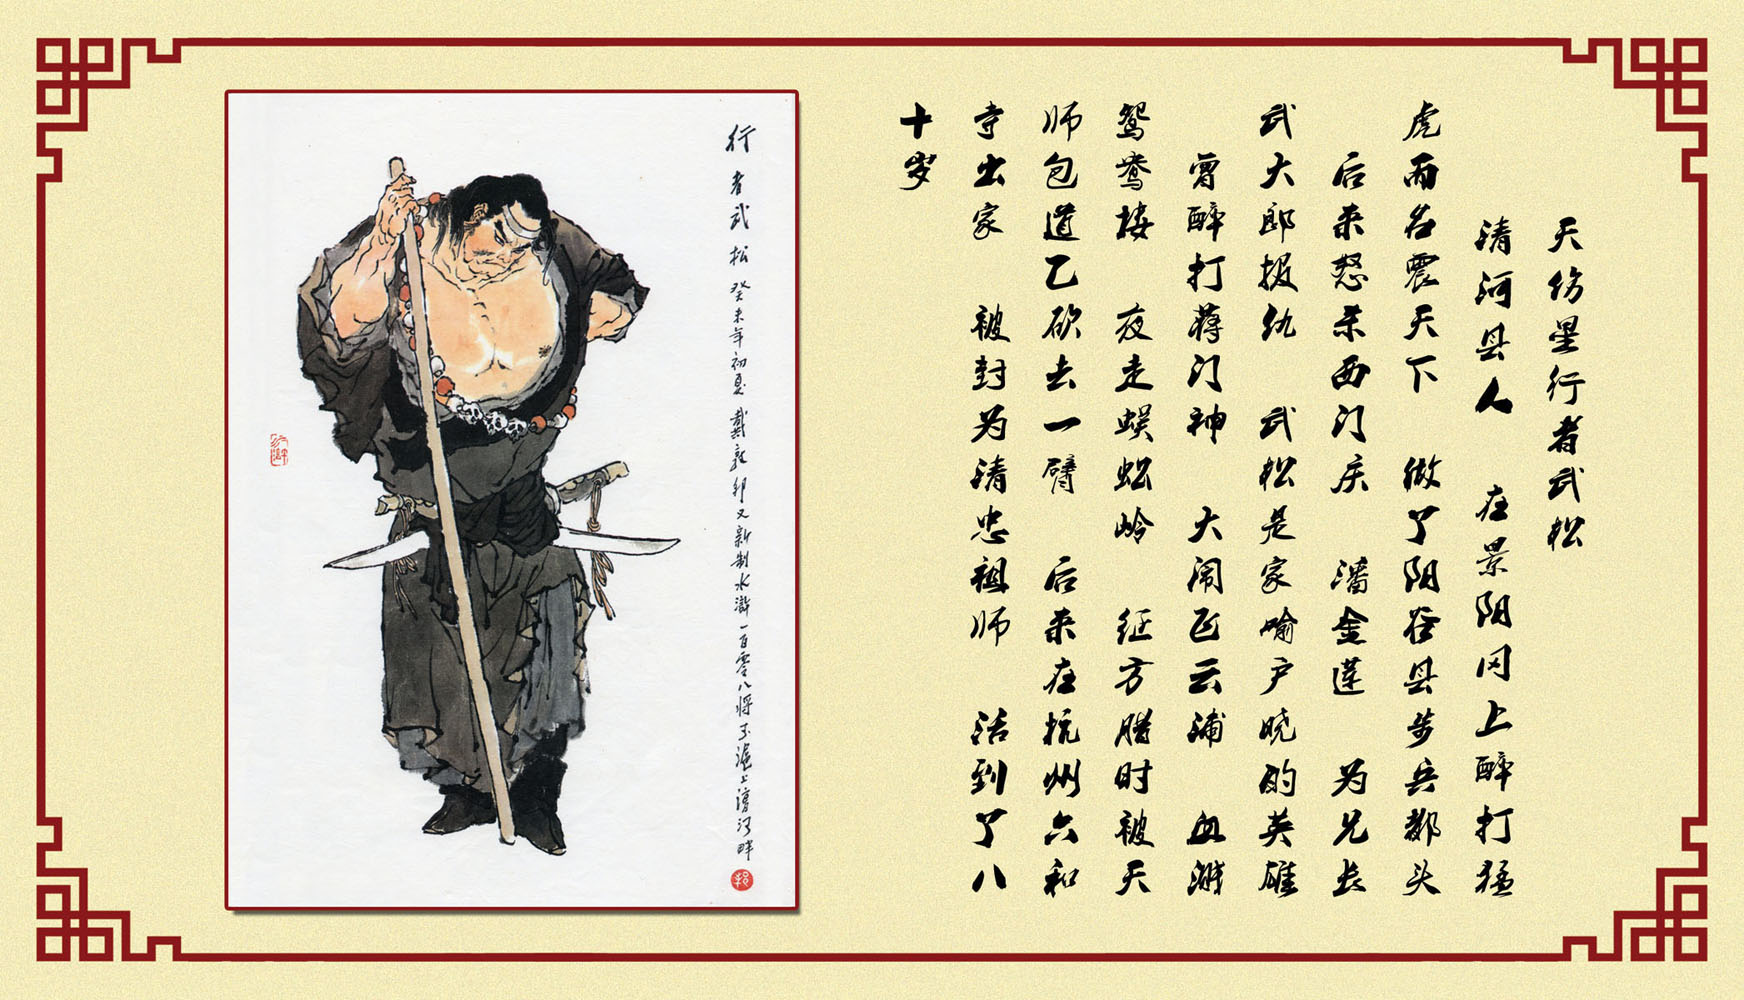 天伤星行者武松
清河县人 在景阳冈上醉打猛
虎而名震天下 做了阳谷县步兵都头
后来怒杀西门庆 潘金莲 为兄长
武大郎报仇 武松是家喻户晓的英雄
曾醉打蒋门神 大闹飞云浦 血溅
鸳鸯楼 夜走蜈蚣岭 征方腊时被天
师包道乙砍去一臂 后来在杭州六和
寺出家 被封为清忠祖师 活到了八
十岁
行者武松 癸未年初夏 戴敦邦又新制水浒一百零八将于沪上漕河畔